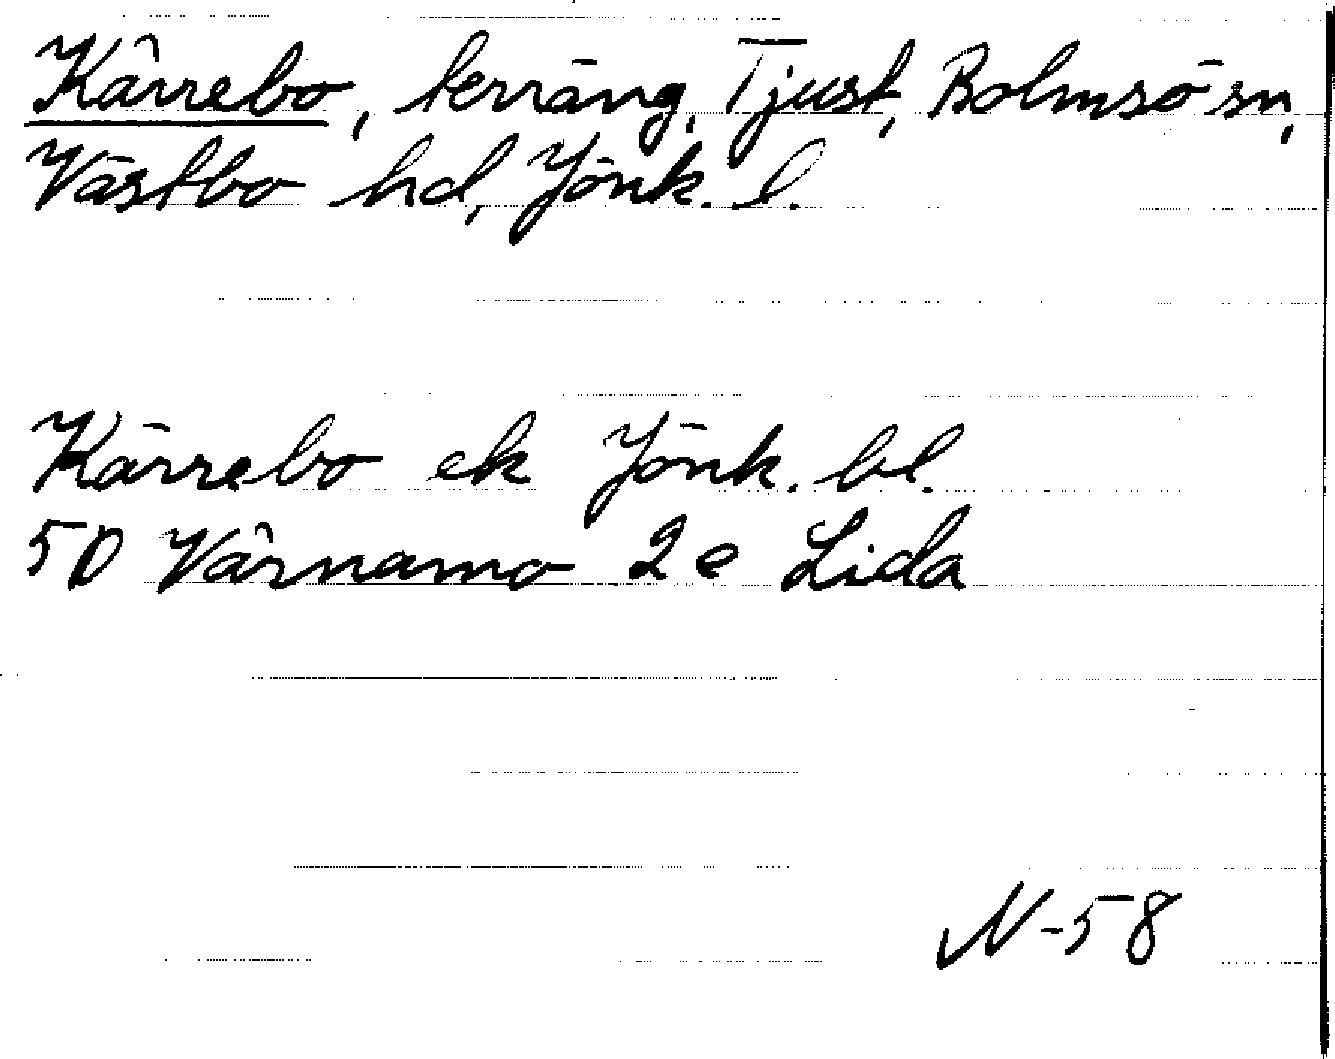 Kärrebo, terräng, Tjust, Bolmsö sn,
Västbo hd, Jönk. l.
Kärrebo ek Jönk. bl.
50 Värnamo 2e Lida
N-58